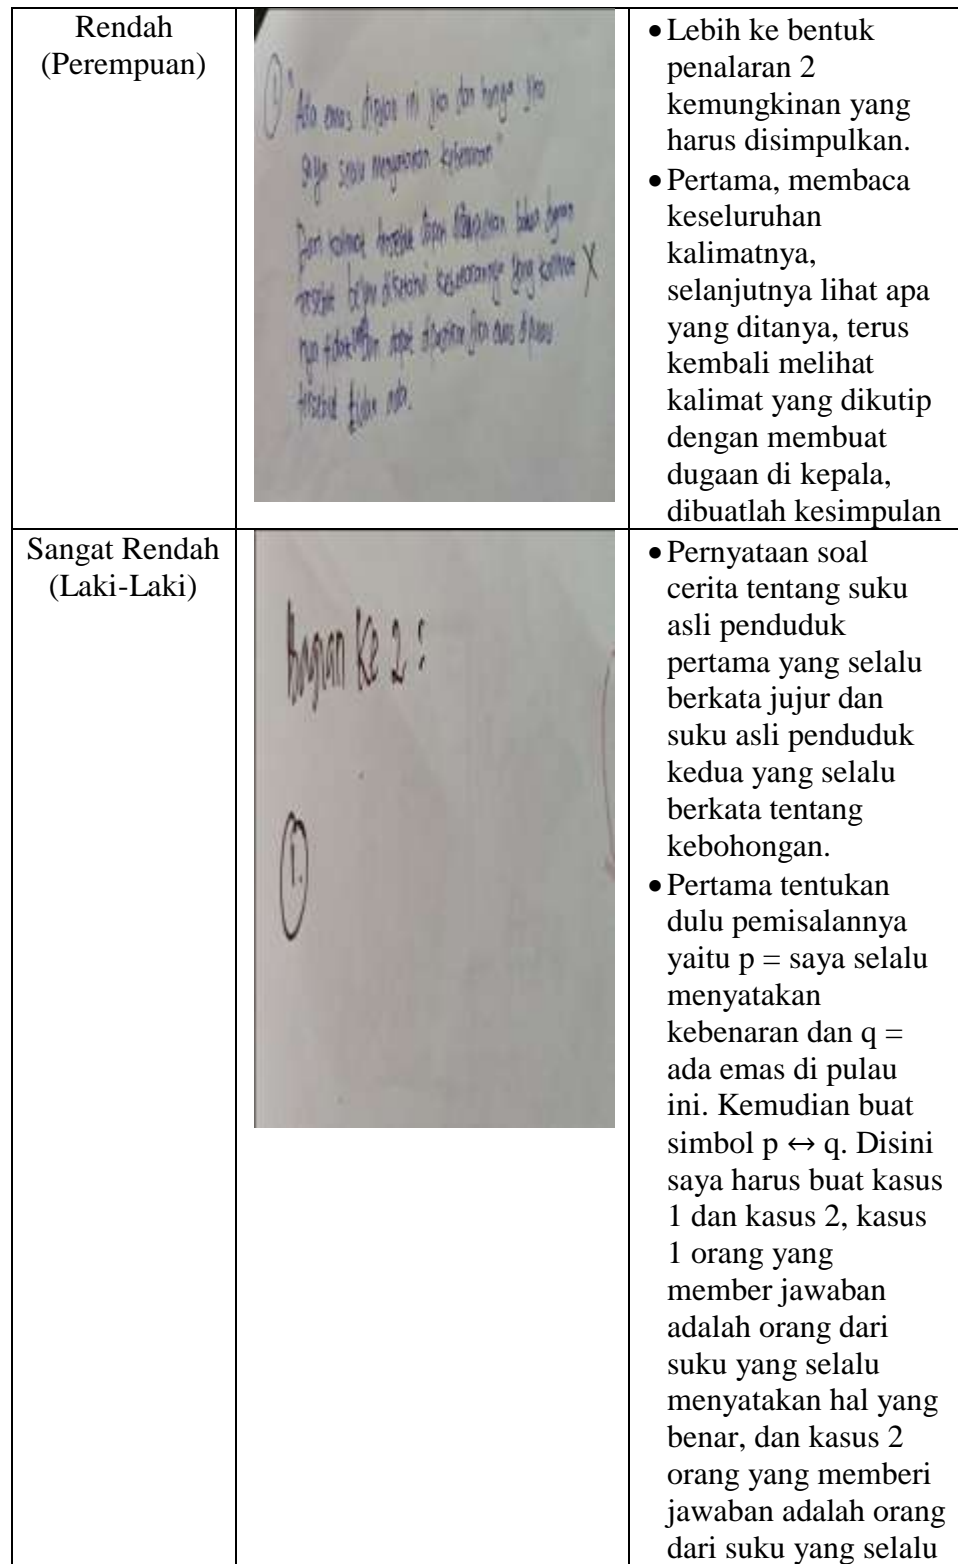 Rendah
(Perempuan)
1
"Ada emas dipulau ini jika dan hanya jika
saya selalu menyatakan kebenaran"
Dari kalimat tersebut dapat disimpulkan bahwa
tersebut kebenarannya yang kalimat
nya tidak dapat dipastikan jika emas dipulau
tersebut ada.
• Lebih ke bentuk
penalaran 2
kemungkinan yang
harus disimpulkan.
• Pertama, membaca
keseluruhan
kalimatnya,
selanjutnya lihat apa
yang ditanya, terus
kembali melihat
kalimat yang dikutip
dengan membuat
dugaan di kepala,
dibuatlah kesimpulan
Sangat Rendah
(Laki-Laki)
Bagian Ke 2 :
1.
• Pernyataan soal
cerita tentang suku
asli penduduk
pertama yang selalu
berkata jujur dan
suku asli penduduk
kedua yang selalu
berkata tentang
kebohongan.
• Pertama tentukan
dulu pemisalannya
yaitu p = saya selalu
menyatakan
kebenaran dan q =
ada emas di pulau
ini. Kemudian buat
simbol p ↔ q. Disini
saya harus buat kasus
1 dan kasus 2, kasus
1 orang yang
member jawaban
adalah orang dari
suku yang selalu
menyatakan hal yang
benar, dan kasus 2
orang yang memberi
jawaban adalah orang
dari suku yang selalu